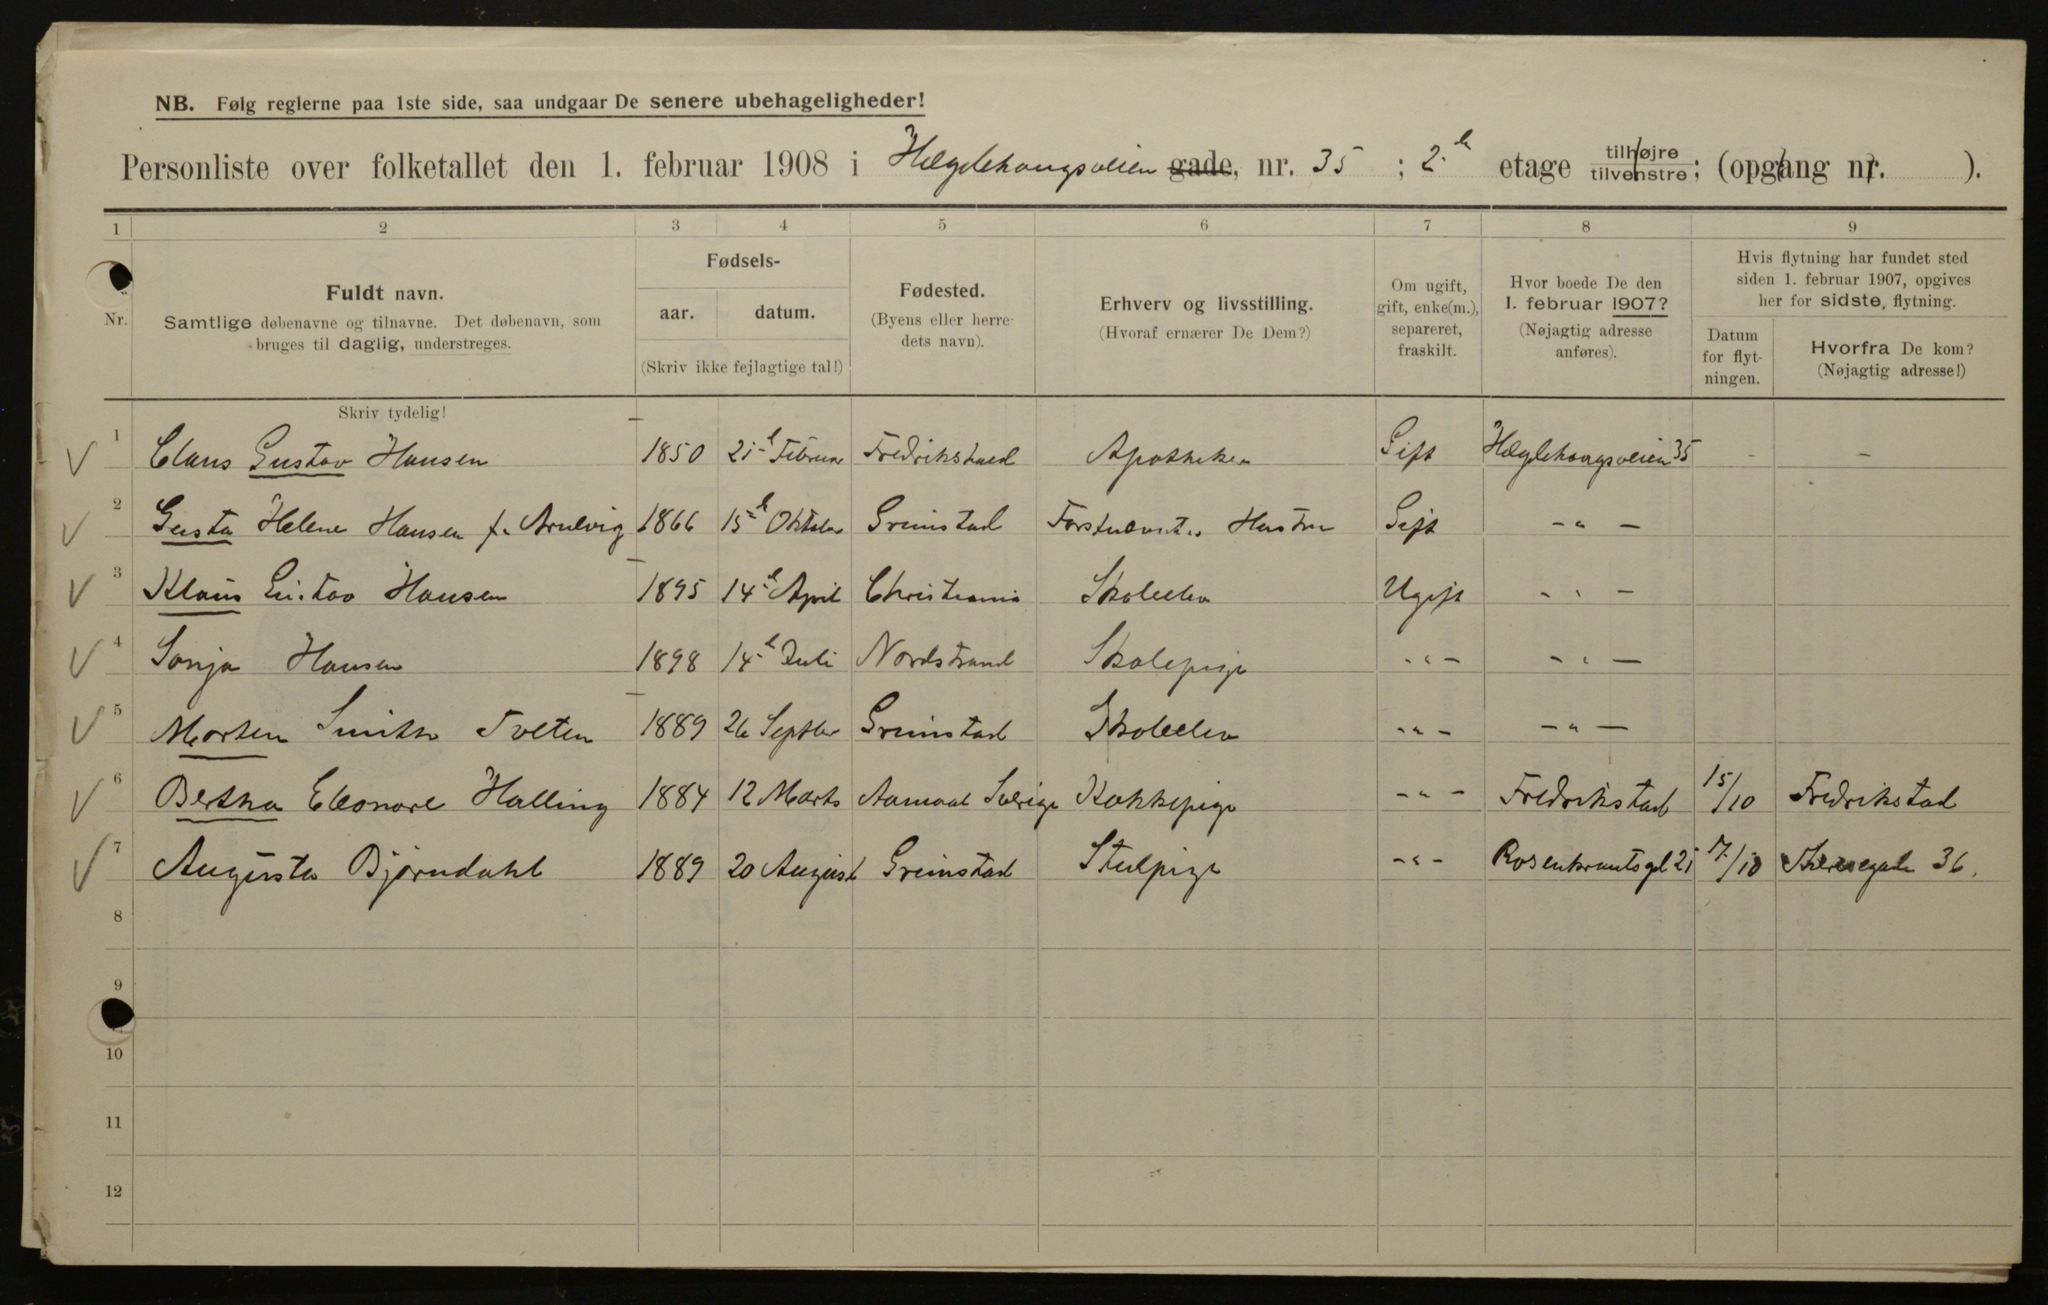 NB. Følg reglerne paa 1ste side, saa undgaar De senere ubehageligheder!
Personliste over folketallet den 1. februar 1908 i Hægdehaugsveien gade, nr. 35 ; 2. etage tilhøjre tilvenstre; (opgang nr. ).
1 2 3 4 5 6 7 8 9
Nr.
Fuldt navn.
Samtlige døbenavne og tilnavne. Det døbenavn, som
bruges til daglig, understreges.
Skriv tydelig!
Fødsels-
aar. datum.
(Skriv ikke fejlagtige tal!)
Fødested.
(Byens eller herre-
dets navn).
Erhverv og livsstilling.
(Hvoraf ernærer De Dem?)
Om ugift,
gift, enke(m.),
separeret,
fraskilt.
Hvor boede De den
1. februar 1907?
(Nøjagtig adresse
anføres).
Hvis flytning har fundet sted
siden 1. februar 1907, opgives
her for sidste, flytning.
Datum
for flyt-
ningen.
Hvorfra De kom?
(Nøjagtig adresse!)
1 Claus Gustav Hansen 1850 21 Februar Fredrikstad Apotheker Gift Hægdehaugsveien 35 - -
2 Gusta Helene Hansen f. Arnevig 1866 15 Oktober Grimstad Forstnævntes Hustru Gift - " -
3 Klaus Gustav Hansen 1895 14 April Christiania Skoleelev Ugift - " -
4 Sonja Hansen 1898 14 Juli Nordstrand Skolepige - " - - " -
5 Morten Smith Tveten 1889 26 Septbr Grimstad Skoleelev - " - - " -
6 Bertha Eleonore Halling 1884 12 Marts Aamaal Sverige Kokkepige - " - Fredrikstad 15/10 Fredrikstad
7 Augusta Bjørndahl 1889 20 August Grimstad Stuepige - " - Rosenkrantsgd 21 17/10 Theresegade 36.
8
9
10
11
12